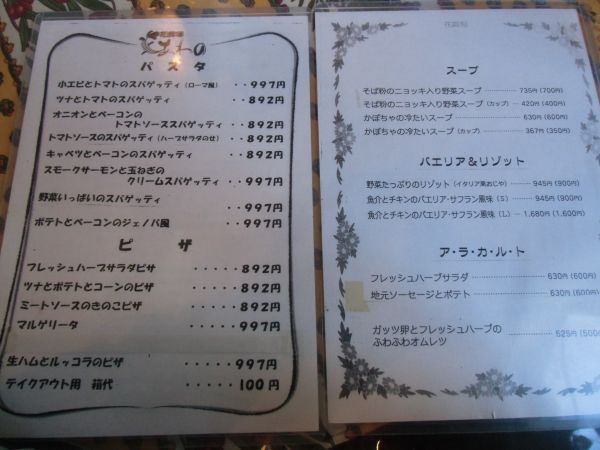 パスタ
小エビとトマトのスパゲッティ（ローマ風） ・・997円
ツナとトマトのスパゲッティ ・・892円
オニオンとベーコンの
トマトソーススパゲッティ ・・892円
トマトソースのスパゲッティ（ハーブサラダのせ） ・・892円
キャベツとベーコンのスパゲッティ ・・892円
スモークサーモンと玉ねぎの
クリームスパゲッティ ・・997円
野菜いっぱいのスパゲッティ ・・997円
ポテトとベーコンのジェノバ風 ・・997円
ピザ
フレッシュハーブサラダピザ ・・・・・892円
ツナとポテトとコーンのピザ ・・・・・892円
ミートソースのきのこピザ ・・・・・892円
マルゲリータ ・・・・・997円
生ハムとルッコラのピザ ・・・・・997円
テイクアウト用 箱代 ・・・・・100円
スープ
そば粉のニョッキ入り野菜スープ 735円(700円)
そば粉のニョッキ入り野菜スープ（カップ） 420円(400円)
かぼちゃの冷たいスープ 630円(600円)
かぼちゃの冷たいスープ（カップ） 367円(350円)
パエリア＆リゾット
野菜たっぷりのリゾット（イタリア風おじや） 945円(900円)
魚介とチキンのパエリア・サフラン風味（S） 945円(900円)
魚介とチキンのパエリア・サフラン風味（L） 1,680円(1,600円)
ア・ラ・カ・ル・ト
フレッシュハーブサラダ 630円(600円)
地元ソーセージとポテト 630円(600円)
ガッツ卵とフレッシュハーブの
ふわふわオムレツ 525円(500